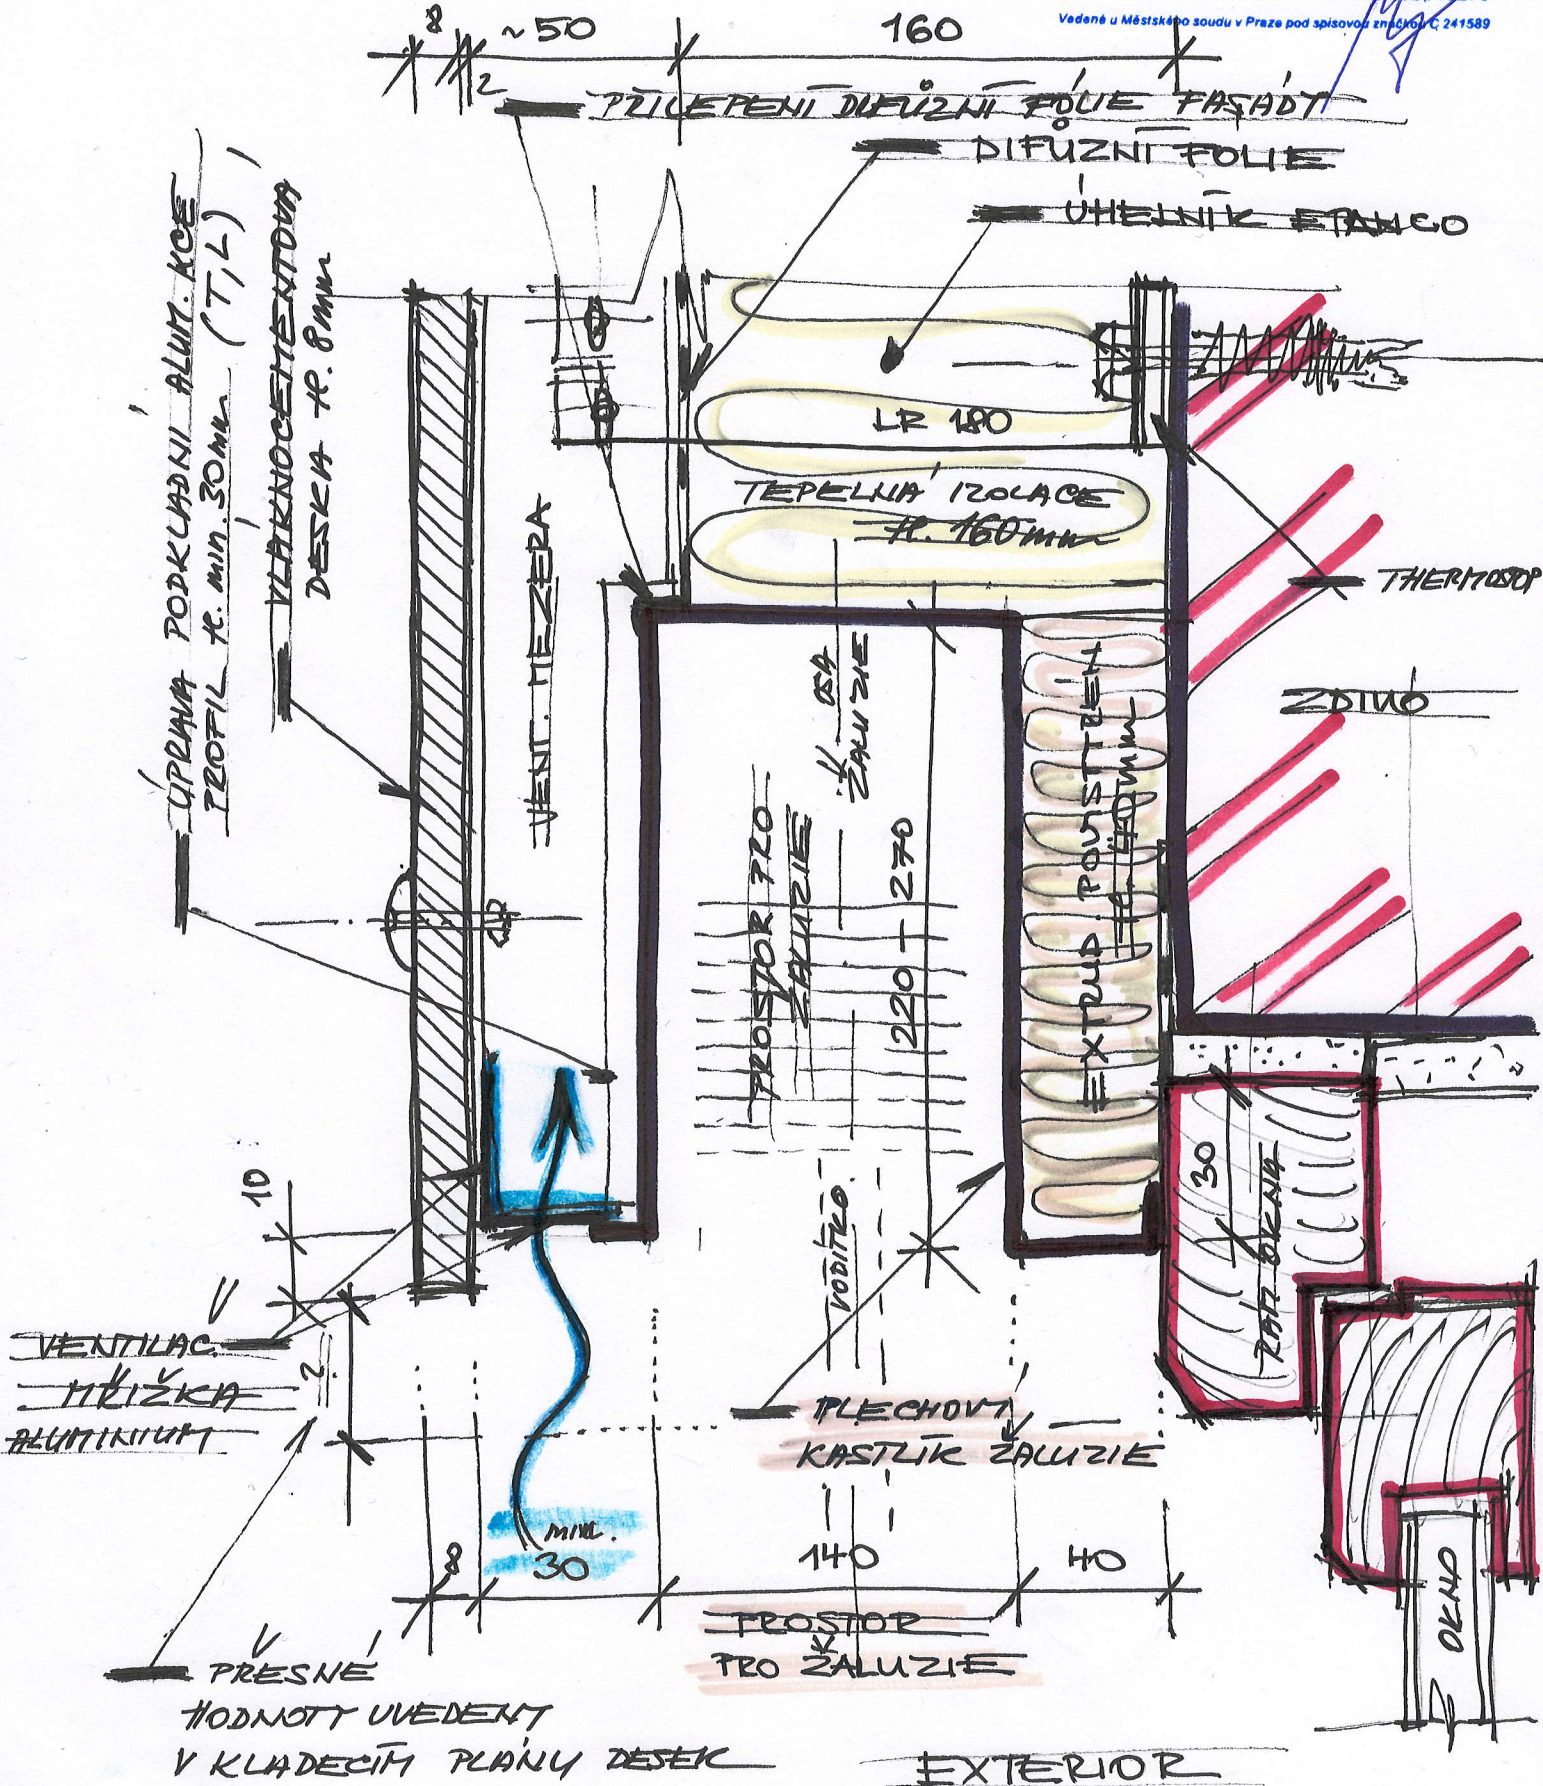 Vedené u Městského soudu v Praze pod spisovou značkou C 241589
8
2
~50
160
PŘILEPENÍ DIFÚZNÍ FÓLIE FASÁDY
DIFÚZNÍ FOLIE
ÚHELNÍK ETANCO
ÚPRAVA PODKLADNÍ ALUM. KCE
PROFIL tl. min. 30mm (T, L)
VLÁKNOCEMENTOVÁ
DESKA tl. 8mm
VENT. MEZERA
LR 180
TEPELNÁ IZOLACE
tl. 160mm
THERMOSTOP
ZDIVO
OSA
ŽALUZIE
PROSTOR PRO
ŽALUZIE
220 - 270
EXTRUD. POLYSTYREN
tl. 40mm
30
RÁM OKNA
VODÍTKO
10
VENTILAČ.
MŘÍŽKA
ALUMINIUM
2
PLECHOVÝ
KASTLÍK ŽALUZIE
8
min.
30
140
40
PROSTOR
PRO ŽALUZIE
OKNO
PŘESNÉ
HODNOTY UVEDENY
V KLADECÍM PLÁNU DESEK
EXTERIOR